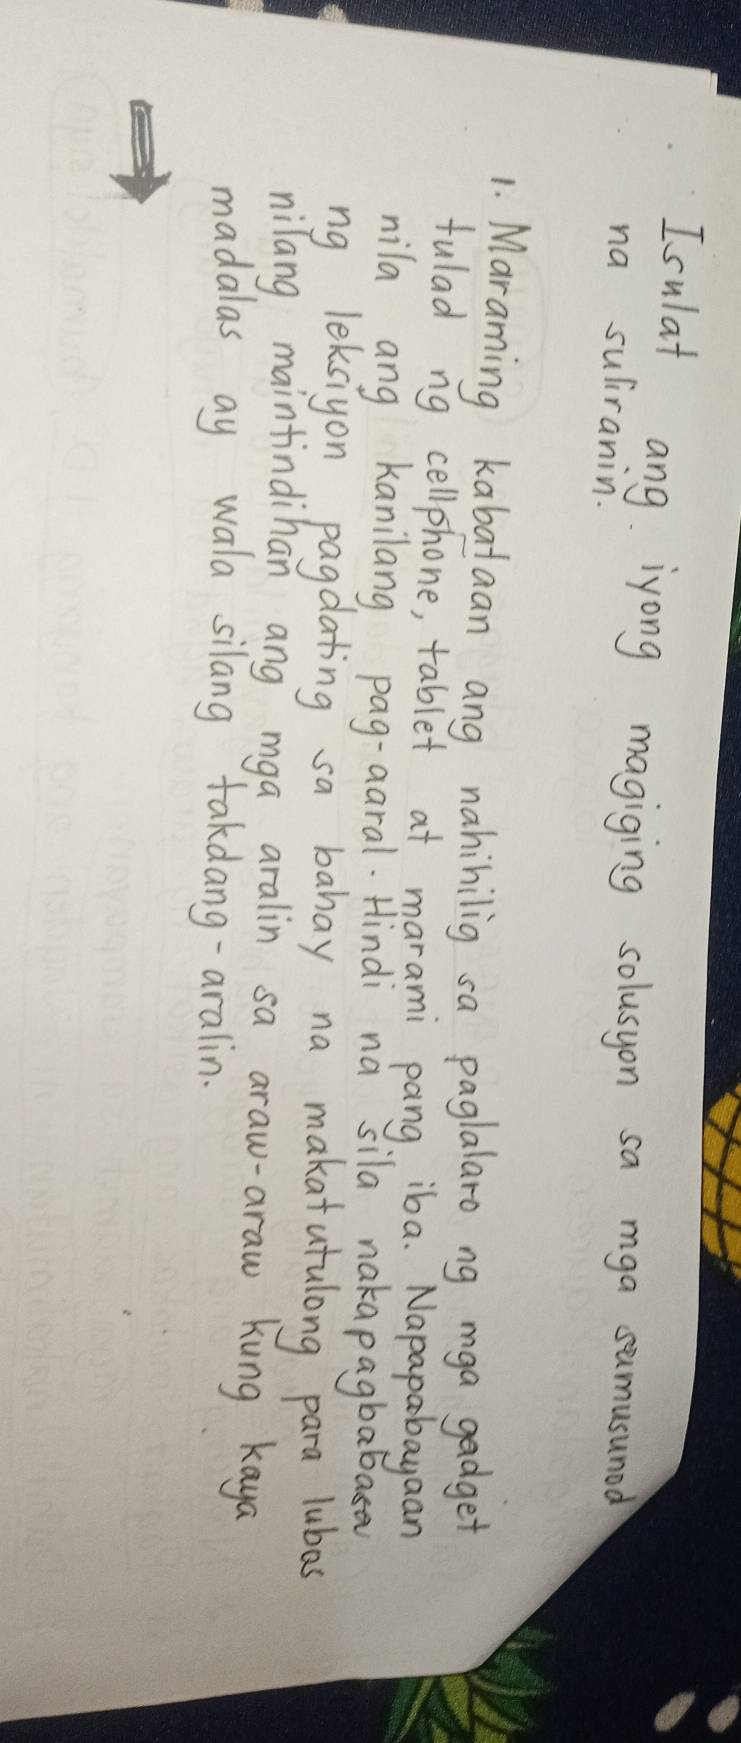 Isulat ang iyong magiging solusyon sa mga sumusunod
na suliranin.
1. Maraming kabataan ang nahihilig sa paglalaro ng mga gadget
tulad ng cellphone, tablet at marami pang iba. Napapabayaan
nila ang kanilang pag-aaral. Hindi na sila nakapagbabasa
ng leksiyon pagdating sa bahay na makatutulong para lubos
nilang maintindihan ang mga aralin sa araw-araw kung kaya
madalas ay wala silang takdang-aralin.